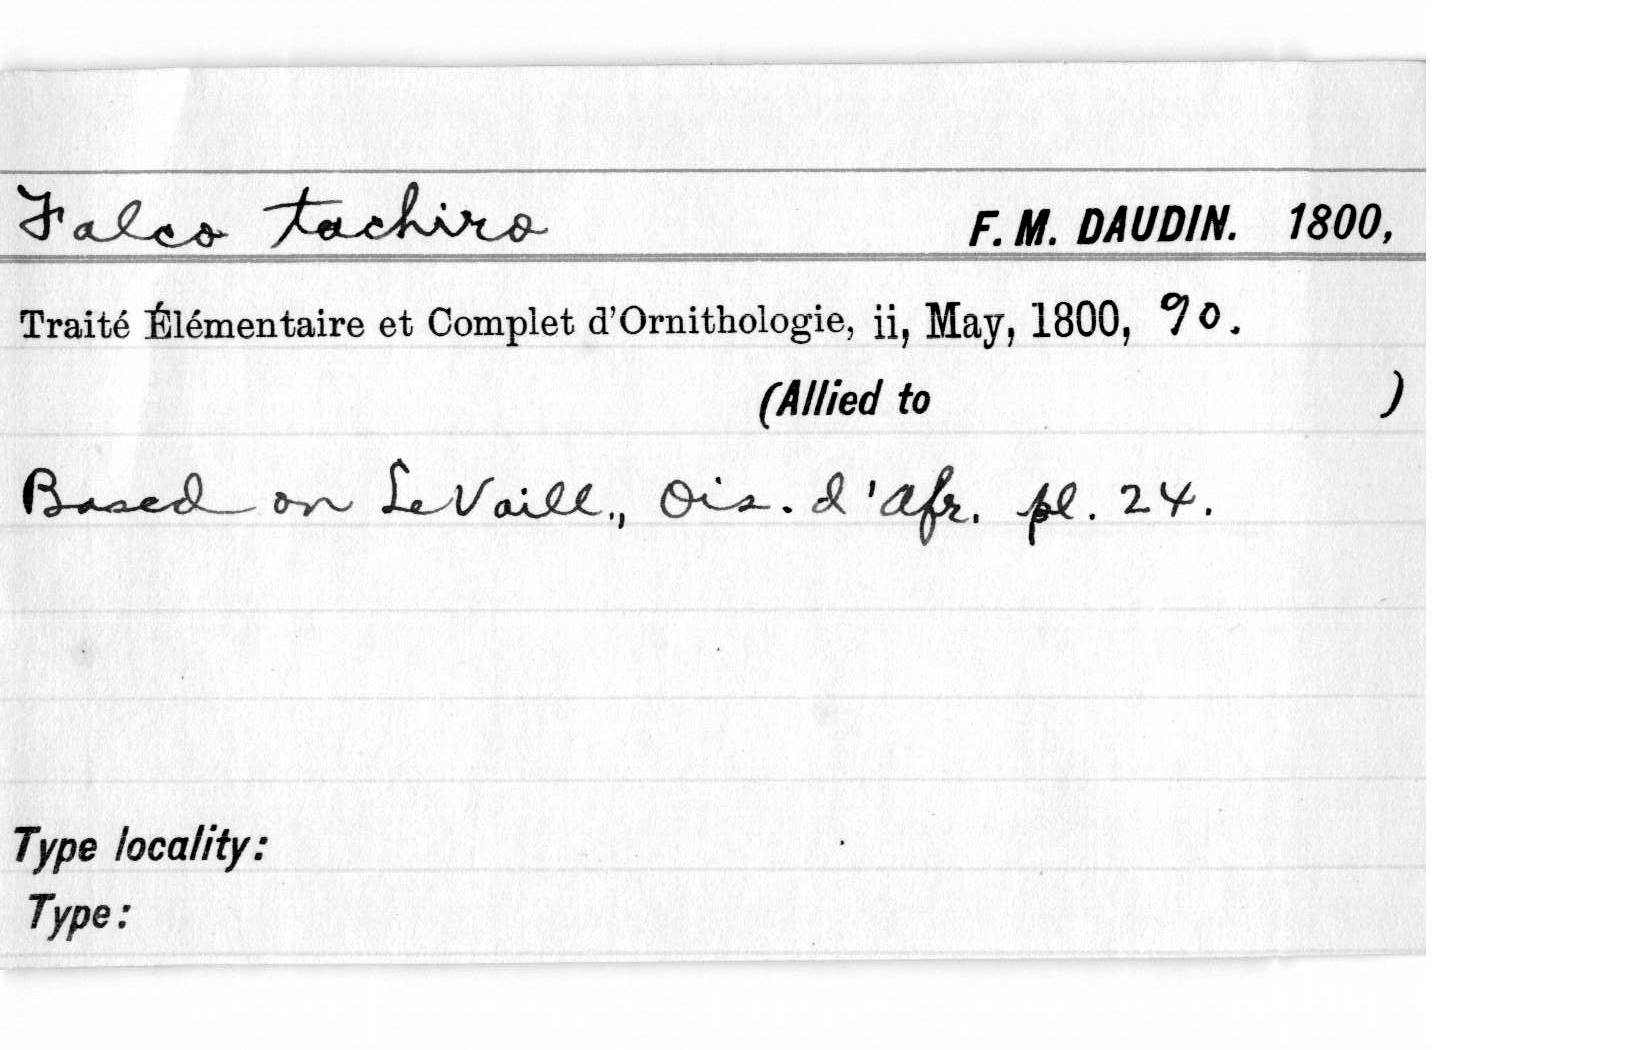 Falco tachiro F. M. DAUDIN. 1800,
Traité Élémentaire et Complet d'Ornithologie, ii, May, 1800, 90.
(Allied to )
Based on LeVaill., Ois. d'Afr. pl. 24.
Type locality:
Type: